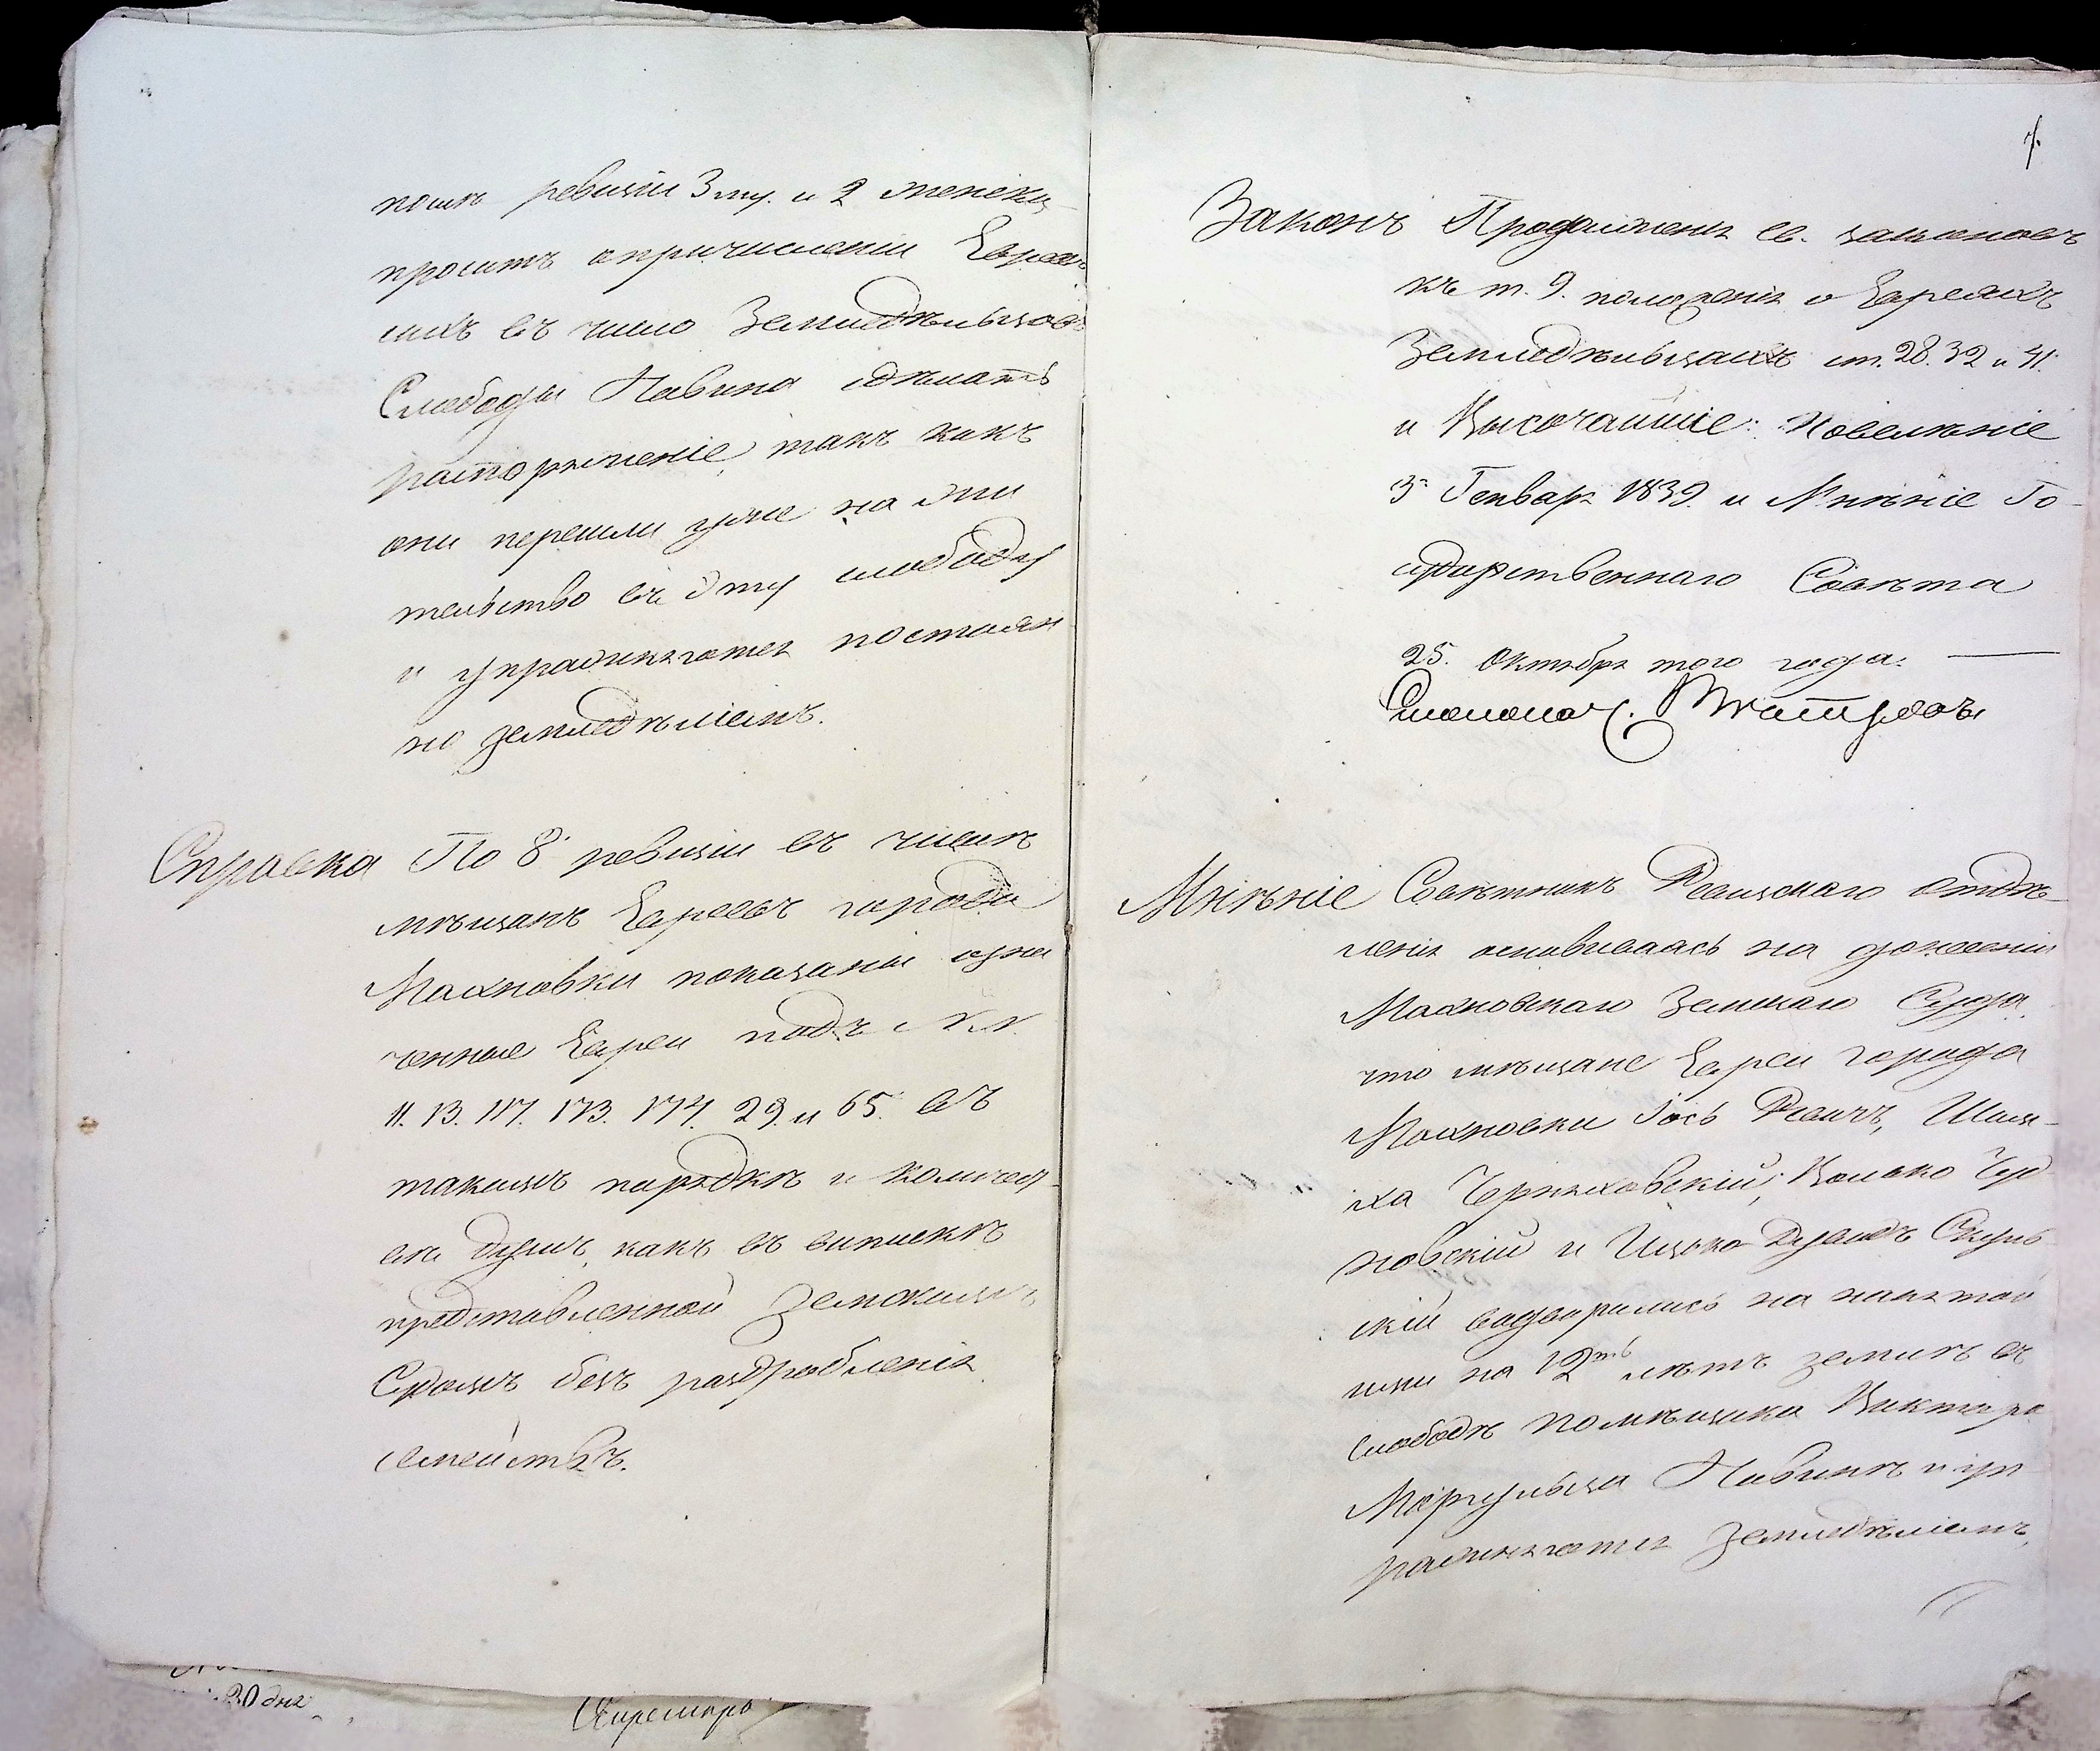 ревизіи 3 му. и 2 женска
проситъ о причисленіи Евреевъ
сихъ въ число Земледѣльцовъ
Слободы Павина сдѣлать
распоряженіе, такъ какъ
они перешли уже на жи
тельство въ эту слободу
и упражняются постоян
но земледѣліемъ.
Справка По 8 ревизіи въ числѣ
мѣщанъ Евреевъ города
Махновки показаны озна
ченные Евреи подъ №№
11. 13. 117. 173. 174. 29. и 65. въ
такомъ порядкѣ и количест
вѣ душъ, какъ въ выпискѣ
представленной Земскимъ
Судомъ безъ раздробленія
семействъ.
30 дня
7.
Законъ Продолженія св. законовъ
къ т. 9. положенія о Евреяхъ
Земледѣльцахъ ст. 28. 32 и 41.
и Высочайшіе: Повелѣніе
3 Генваря 1839. и Мнѣніе Го-
сударственнаго Совѣта
25. Октября того года. —
Мнѣніе Совѣтникъ Ревизскаго отдѣ-
ленія основываясь на донесеніи
Махновскаго Земскаго Суда,
что мѣщане Евреи города
Махновки Іось Шлём-
ха Черняховскій, Волько Чуд
новскій и Ицько Скульс
кій водворились на нанятой
ими на 12ть лѣтъ землѣ въ
слободѣ помѣщика Виктора
Мержульца Павинѣ и уп
ражняются земледѣліемъ,